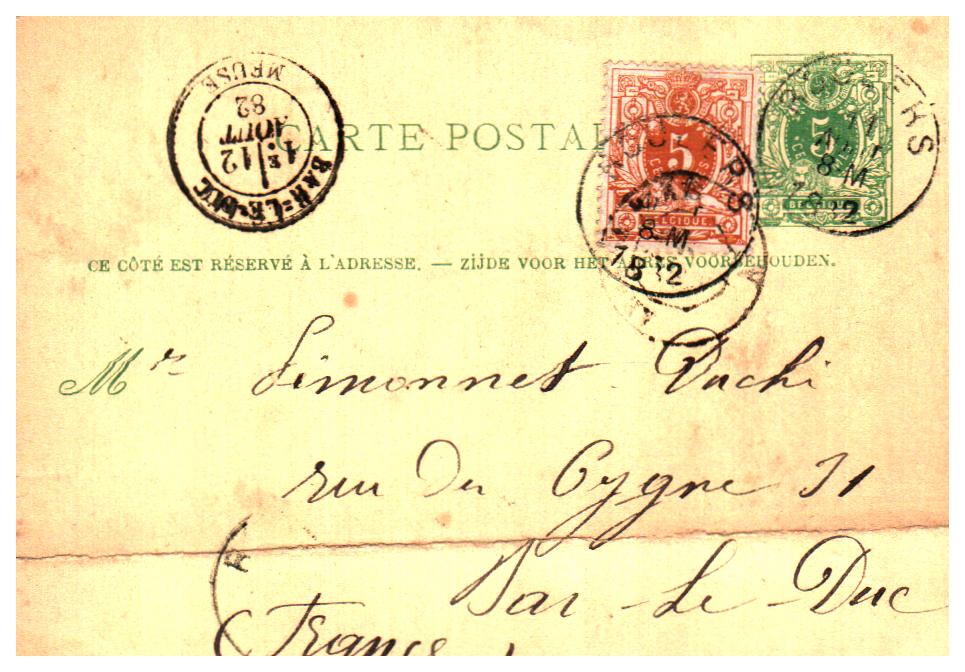 CARTE POSTALE
5
BELGIQUE
5
CE CÔTÉ EST RÉSERVÉ À L'ADRESSE. — ZIJDE VOOR HET ADRES VOORBEHOUDEN.
BAR-LE-DUC
1E 12
AOUT
82
MEUSE
8 M
8 M
Mr Simonnet Duchi
rue du Cygne 31
Bar-Le-Duc
France